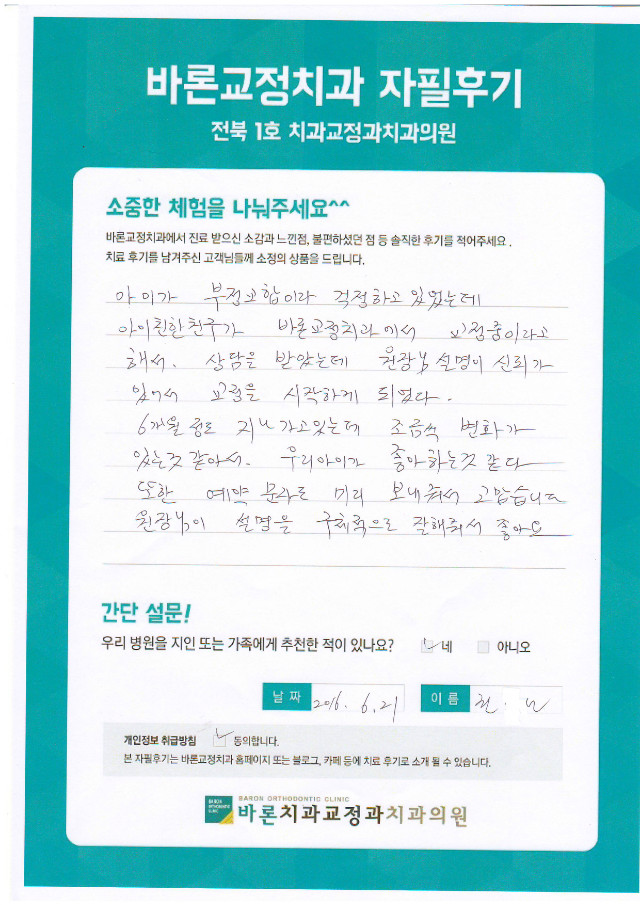 바론교정치과 자필후기
전북 1호 치과교정과치과의원
소중한 체험을 나눠주세요^^
바론교정치과에서 진료 받으신 소감과 느낀점, 불편하셨던 점 등 솔직한 후기를 적어주세요.
치료 후기를 남겨주신 고객님들께 소정의 상품을 드립니다.
아이가 부정교합이라 걱정하고 있었는데
아이친한친구가 바론교정치과에서 교정중이라고
해서. 상담을 받았는데 원장님 설명이 신뢰가
있어서 교정을 시작하게 되었다.
6개월 정도 지나가고있는데 조금씩 변화가
있는것 같아서. 우리아이가 좋아하는것 같다
또한 예약 문자로 미리 보내줘서 고맙습니다
원장님이 설명을 구체적으로 잘해줘서 좋아요
간단 설문!
우리 병원을 지인 또는 가족에게 추천한 적이 있나요? 네 아니오
날 짜 2016. 6. 21 이 름
개인정보 취급방침 동의합니다.
본 자필후기는 바론교정치과 홈페이지 또는 블로그, 카페 등에 치료 후기로 소개 될 수 있습니다.
BARON ORTHODONTIC CLINIC
바론치과교정과치과의원